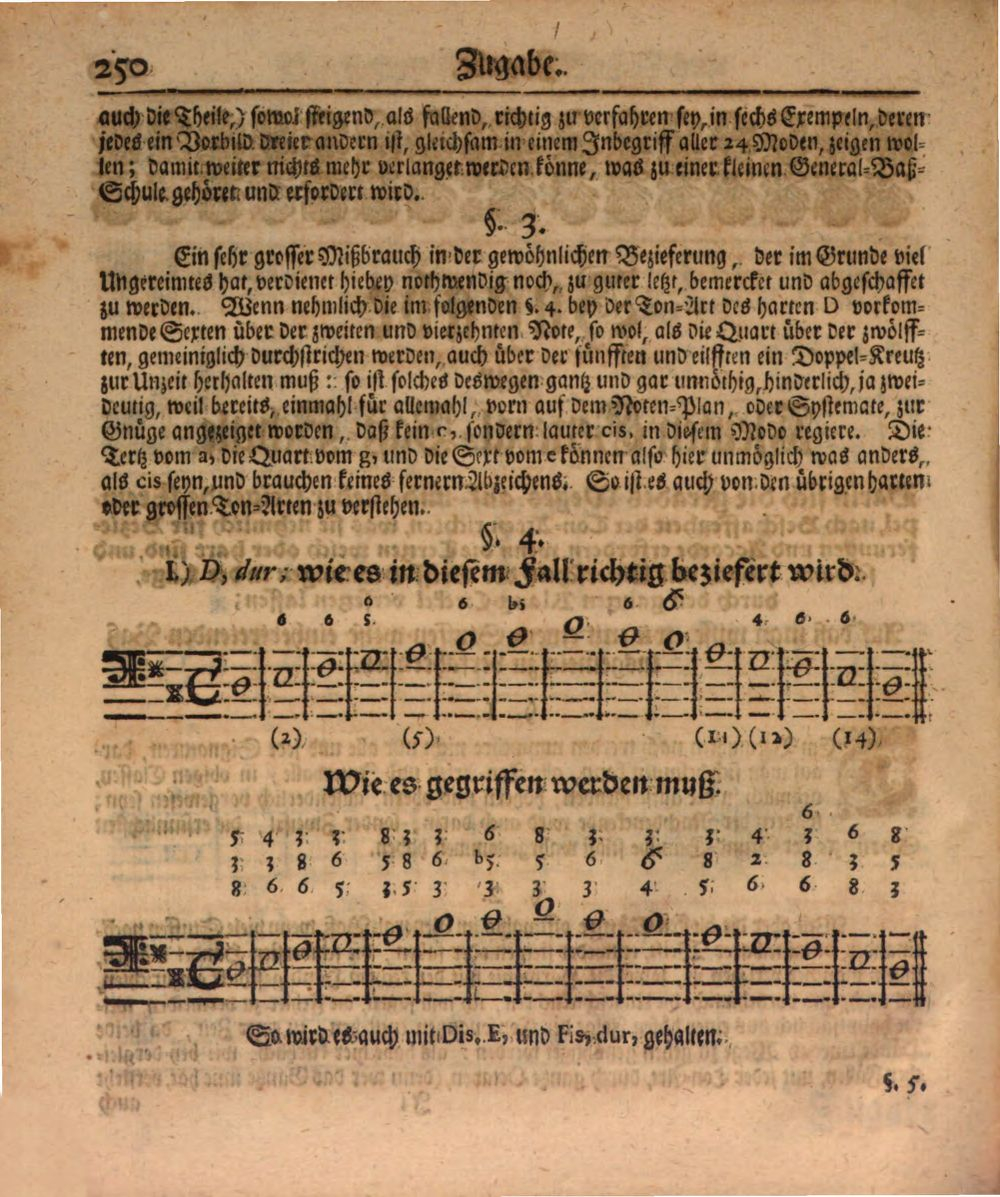 250 Zugabe.
auch die Theile,) sowol steigend, als fallend, richtig zu verfahren sey, in sechs Exempeln, deren
jedes ein Vorbild dreier andern ist, gleichsam in einem Inbegriff aller 24 Moden, zeigen wol-
len; damit weiter nichts mehr verlanget werden könne, was zu einer kleinen General-Baß-
Schule gehöret und erfordert wird.
§. 3.
Ein sehr grosser Mißbrauch in der gewöhnlichen Bezieferung, der im Grunde viel
Ungereimtes hat, verdienet hiebey nothwendig noch, zu guter letzt, bemercket und abgeschaffet
zu werden. Wenn nehmlich die im folgenden §. 4. bey der Ton-Art des harten D vorkom-
mende Sexten über der zweiten und vierzehnten Note, so wol, als die Quart über der zwölff-
ten, gemeiniglich durchstrichen werden, auch über der fünfften und eilfften ein Doppel-Kreutz
zur Unzeit herhalten muß: so ist solches deswegen gantz und gar unnöthig, hinderlich, ja zwei-
deutig, weil bereits, einmahl für allemahl, vorn auf dem Noten-Plan, oder Systemate, zur
Gnüge angezeiget worden, daß kein c, sondern lauter cis, in diesem Modo regiere. Die
Tertz vom a, die Quart vom g, und die Sext vom e können also hier unmöglich was anders,
als cis seyn, und brauchen keines fernern Abzeichens. So ist es auch von den übrigen harten
oder grossen Ton-Arten zu verstehen.
§. 4.
I.) D, dur, wie es in diesem Fall richtig beziefert wird.
6 6 b5 6 6
6 6 5 4 6 6
(2) (5) (11) (12) (14)
Wie es gegriffen werden muß.
6
5 4 3 3 8 3 3 6 8 3 3 3 4 3 6 8
3 3 8 6 5 8 6 b5 5 6 6 8 2 8 3 5
8 6 6 5 3 5 3 3 3 3 4 5 6 6 8 3
So wird es auch mit Dis, E, und Fis, dur, gehalten.
§. 5.